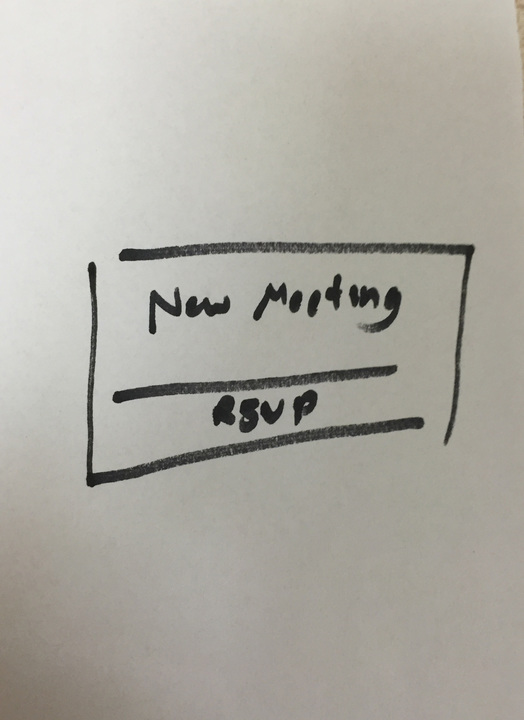 New Meeting
RSVP